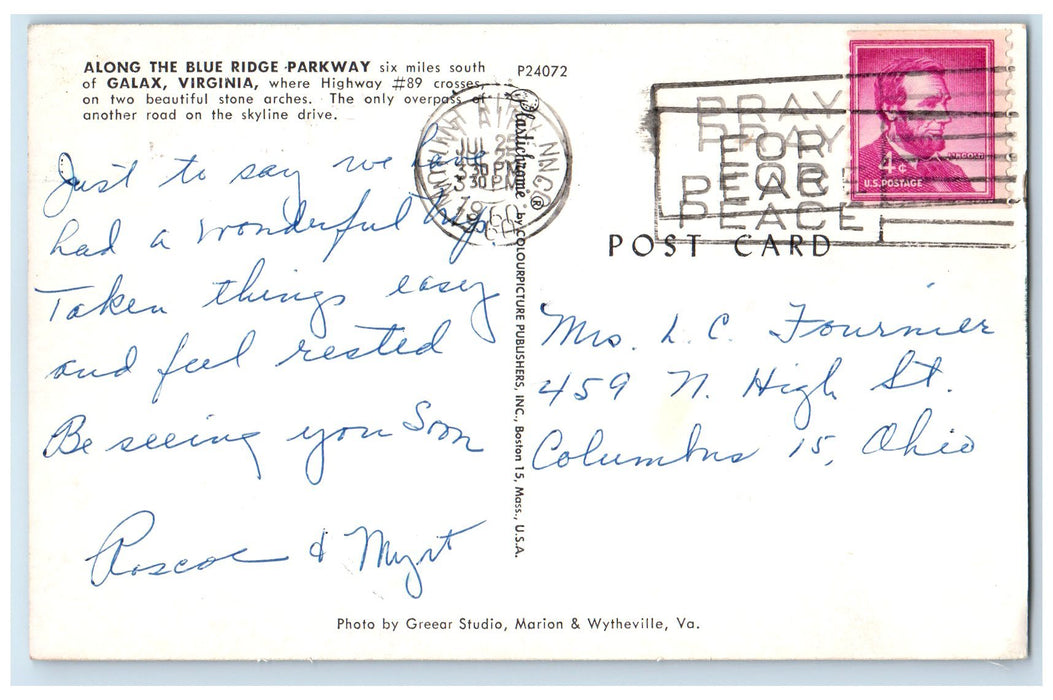 ALONG THE BLUE RIDGE PARKWAY six miles south
of GALAX, VIRGINIA, where Highway #89 crosses,
on two beautiful stone arches. The only overpass of
another road on the skyline drive.
P24072
Just to say we have
had a wonderful trip.
Taken things easy
and feel rested
Be seeing you Soon
Roscoe & Myrt
Plastichrome ® by COLOURPICTURE PUBLISHERS, INC., Boston 15, Mass., U.S.A.
MOUNT AIRY N.C.
JUL 2
3 30 PM
1960
PRAY
FOR
PEACE
4¢
U.S. POSTAGE
LINCOLN
POST CARD
Mrs. L. C. Fournier
459 N. High St.
Columbus 15, Ohio
Photo by Greear Studio, Marion & Wytheville, Va.